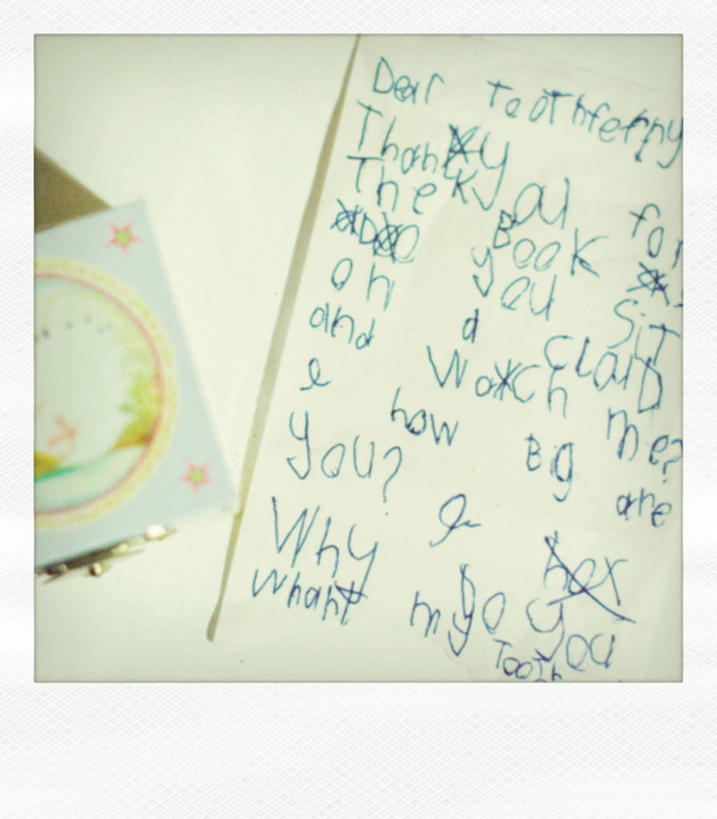 Dear TeoThferhy
Thank you for
The Book
Do you SiT
on a clauD
and Watch me?
how Big are
you?
Why do you
whant my Tooth